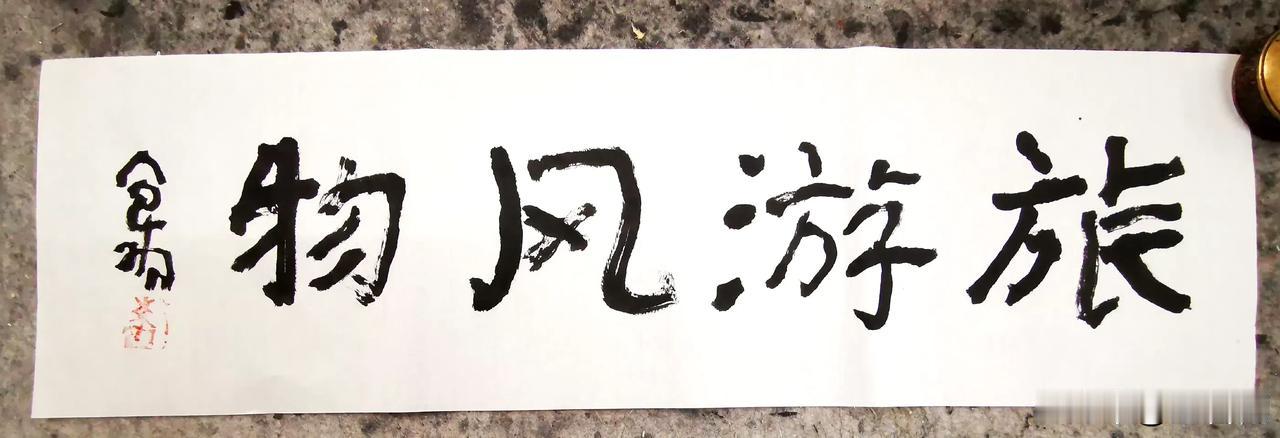 旅游风物